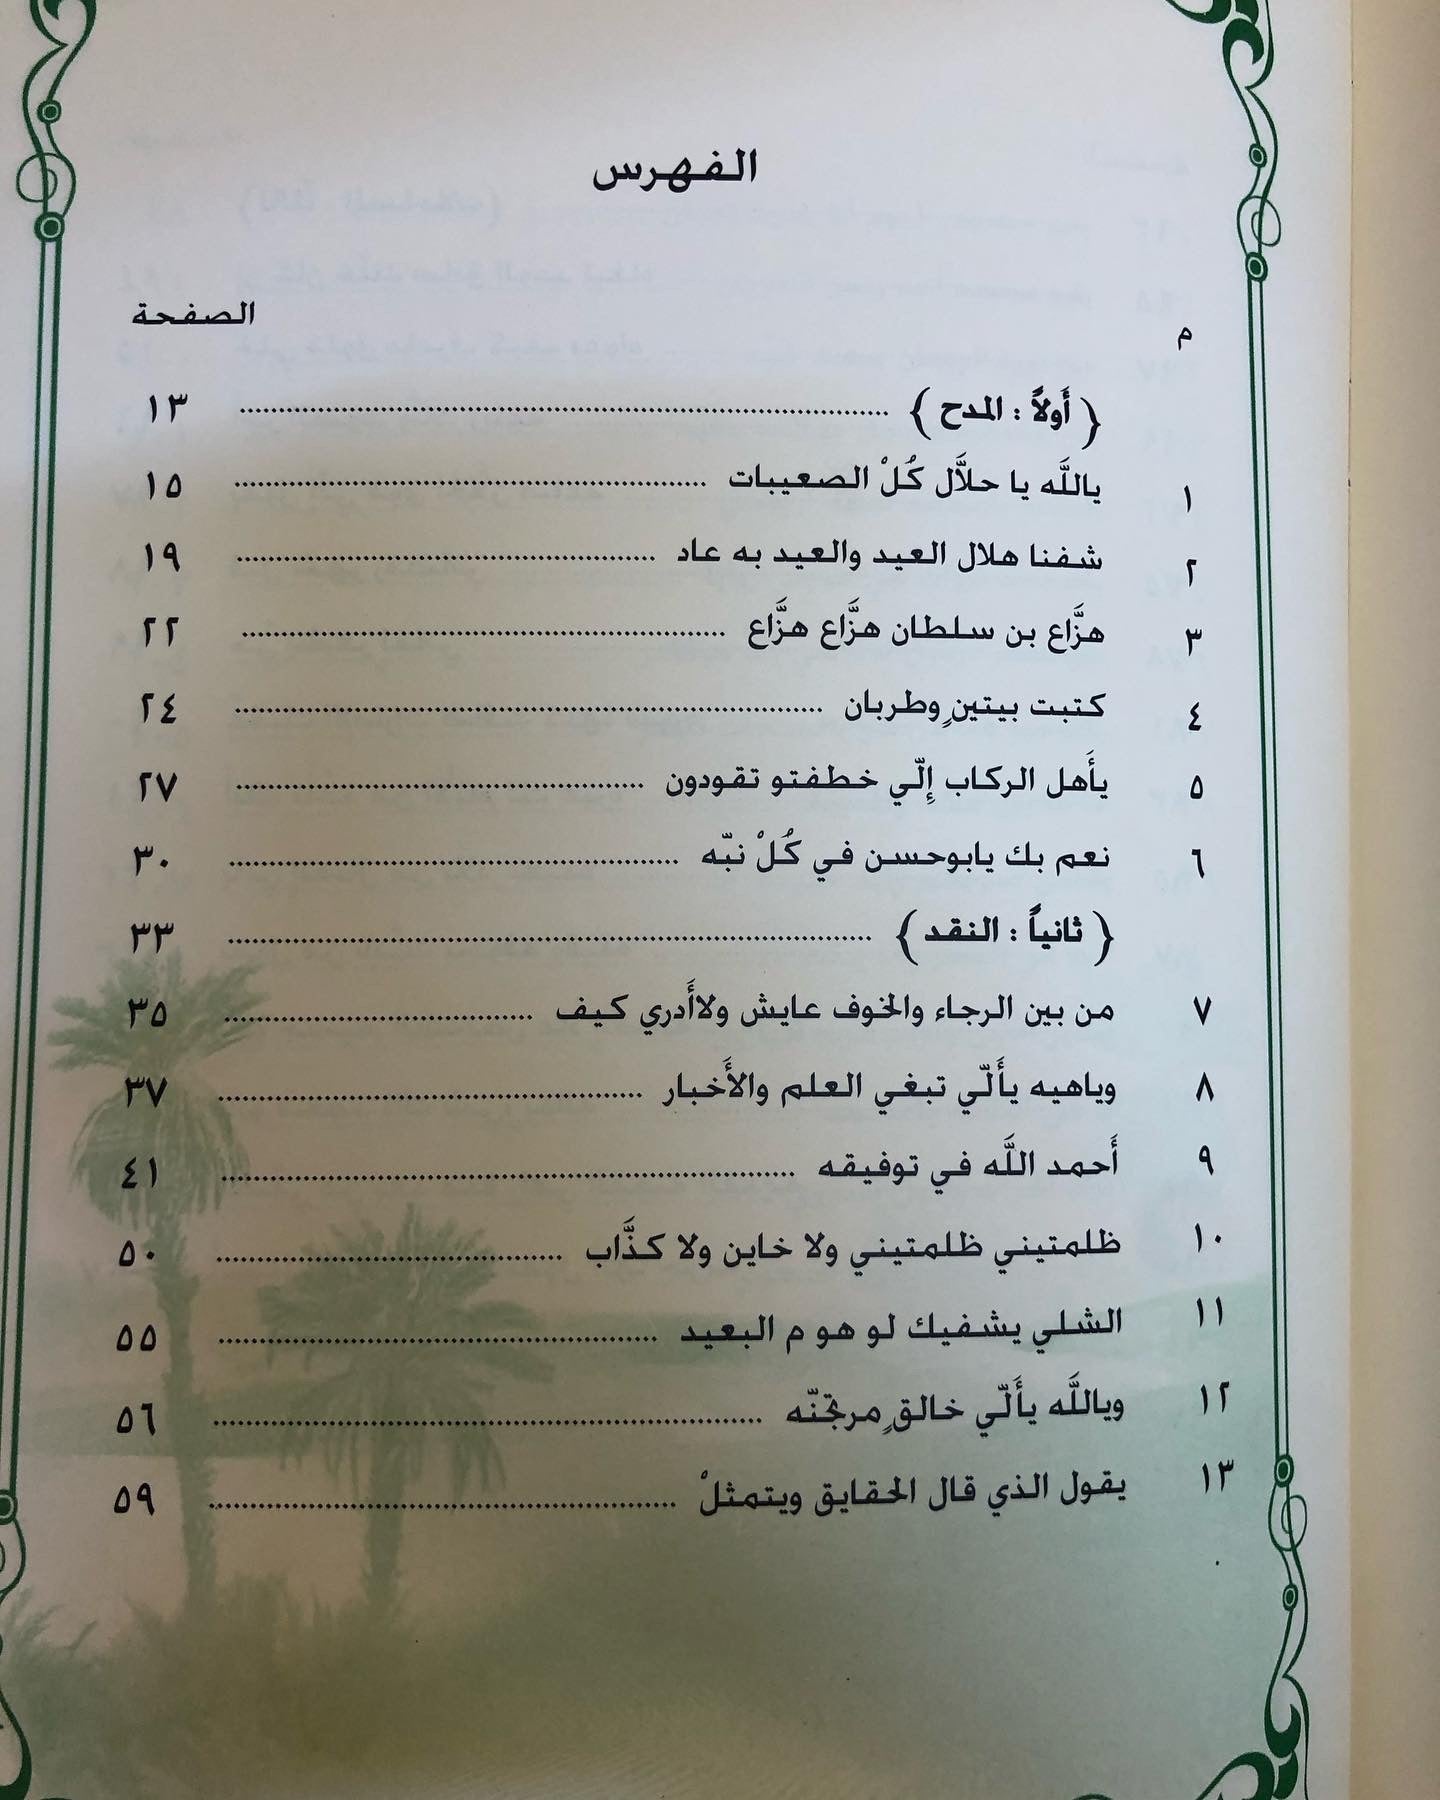 الفهرس
م الصفحة
﴿ أَولاً : المدح ﴾ ........ ١٣
١ ياللَّه يا حلاَّل كُلْ الصعيبات ........ ١٥
٢ شفنا هلال العيد والعيد به عاد ........ ١٩
٣ هزَّاع بن سلطان هزَّاع هزَّاع ........ ٢٢
٤ كتبت بيتينٍ وطربان ........ ٢٤
٥ يأَهل الركاب إِلّي خطفتو تقودون ........ ٢٧
٦ نعم بك يابوحسن في كُلْ نبّه ........ ٣٠
﴿ ثانياً : النقد ﴾ ........ ٣٣
٧ من بين الرجاء والخوف عايش ولاأَدري كيف ........ ٣٥
٨ وياهيه يأَلّي تبغي العلم والأَخبار ........ ٣٧
٩ أَحمد اللَّه في توفيقه ........ ٤١
١٠ ظلمتيني ظلمتيني ولا خاين ولا كذَّاب ........ ٥٠
١١ الشلي يشفيك لو هو م البعيد ........ ٥٥
١٢ وياللَّه يأَلّي خالقٍ مرتجنّه ........ ٥٦
١٣ يقول الذي قال الحقايق ويتمثلْ ........ ٥٩